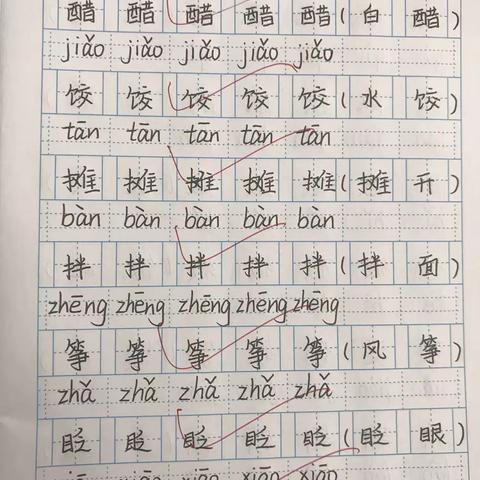 醋 醋 醋 醋 醋 (白 醋)
jiǎo jiǎo jiǎo jiǎo jiǎo
饺 饺 饺 饺 饺 (水 饺)
tān tān tān tān tān
摊 摊 摊 摊 摊 (摊 开)
bàn bàn bàn bàn bàn
拌 拌 拌 拌 拌 (拌 面)
zhēng zhēng zhēng zhēng zhēng
筝 筝 筝 筝 筝 (风 筝)
zhǎ zhǎ zhǎ zhǎ zhǎ
眨 眨 眨 眨 眨 (眨 眼)